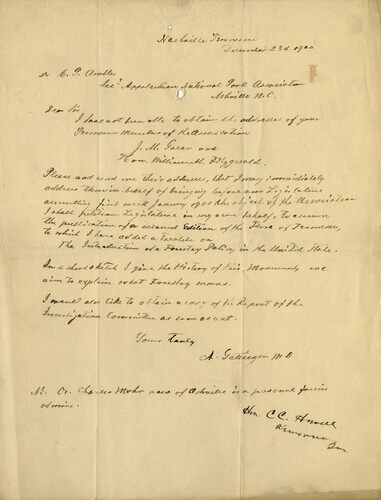 Nashville Tennessee
December 23d 1900
Dr C. P. Ambler
Secy Appalachian National Park Association
Asheville N.C.
Dear Sir
I have not been able to obtain the addresses of your
Tennessee Members of the Association
J. M. Greer and
Hon. William
Please send me their addresses, that I may immediately
address them in behalf of bringing before our Legislature
assembling first week January 1901 the objects of the Association
I shall petition Legislature in my own behalf, to assume
the publication of a second Edition of the Flora of Tennessee,
to which I have added a
The Introduction of a Forestry Policy in the United States.
In a short sketch I give the History of this Movement, we
aim to explain what Forestry means.
I would also like to obtain a copy of the Report of the
Investigation Committee as soon as out.
Yours truly
A. Gattinger MD
NB. Dr. Charles Mohr now of Asheville is a personal friend
of mine.
Hon. C C. Howell